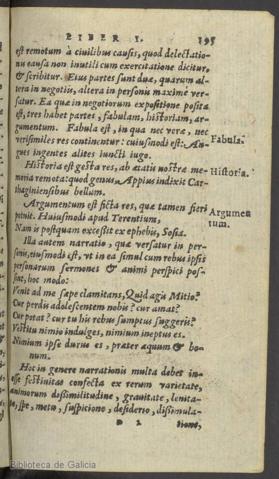 LIBER I. 195
est remotum à ciuilibus causis, quod delectatio-
nis causa non inutili cum exercitatione dicitur,
& scribitur. Eius partes sunt duæ, quarum al-
tera in negotiis, altera in personis maximè ver-
satur. Ea quæ in negotiorum expositione posita
est, tres habet partes, fabulam, historiam, ar-
gumentum. Fabula est, in qua nec veræ, nec
verisimiles res continentur: cuiusmodi est: An-
gues ingentes alites iuncti iugo.
Fabula.
Historia est gesta res, ab ætatis nostræ me-
moria remota: quod genus, Appius indixit Car-
thaginiensibus bellum.
Historia.
Argumentum est ficta res, quæ tamen fieri
potuit. Huiusmodi apud Terentium,
Nam is postquam excessit ex ephebis, Sosia.
Argumen
tum.
Illa autem narratio, quæ versatur in per-
sonis, eiusmodi est, vt in ea simul cum rebus ipsis
personarum sermones & animi perspici pos-
sint, hoc modo:
Venit ad me sæpe clamitans, Quid agis Mitio?
Cur perdis adolescentem nobis? cur amat?
Cur potat? cur tu his rebus sumptus suggeris?
Vestitu nimio indulges, nimium ineptus es.
Nimium ipse durus es, præter æquum & bo-
num.
Hoc in genere narrationis multa debet in-
esse festiuitas confecta ex rerum varietate,
animorum dissimilitudine, grauitate, lenita-
te, spe, metu, suspicione, desiderio, dissimula-
tione,
Biblioteca de Galicia